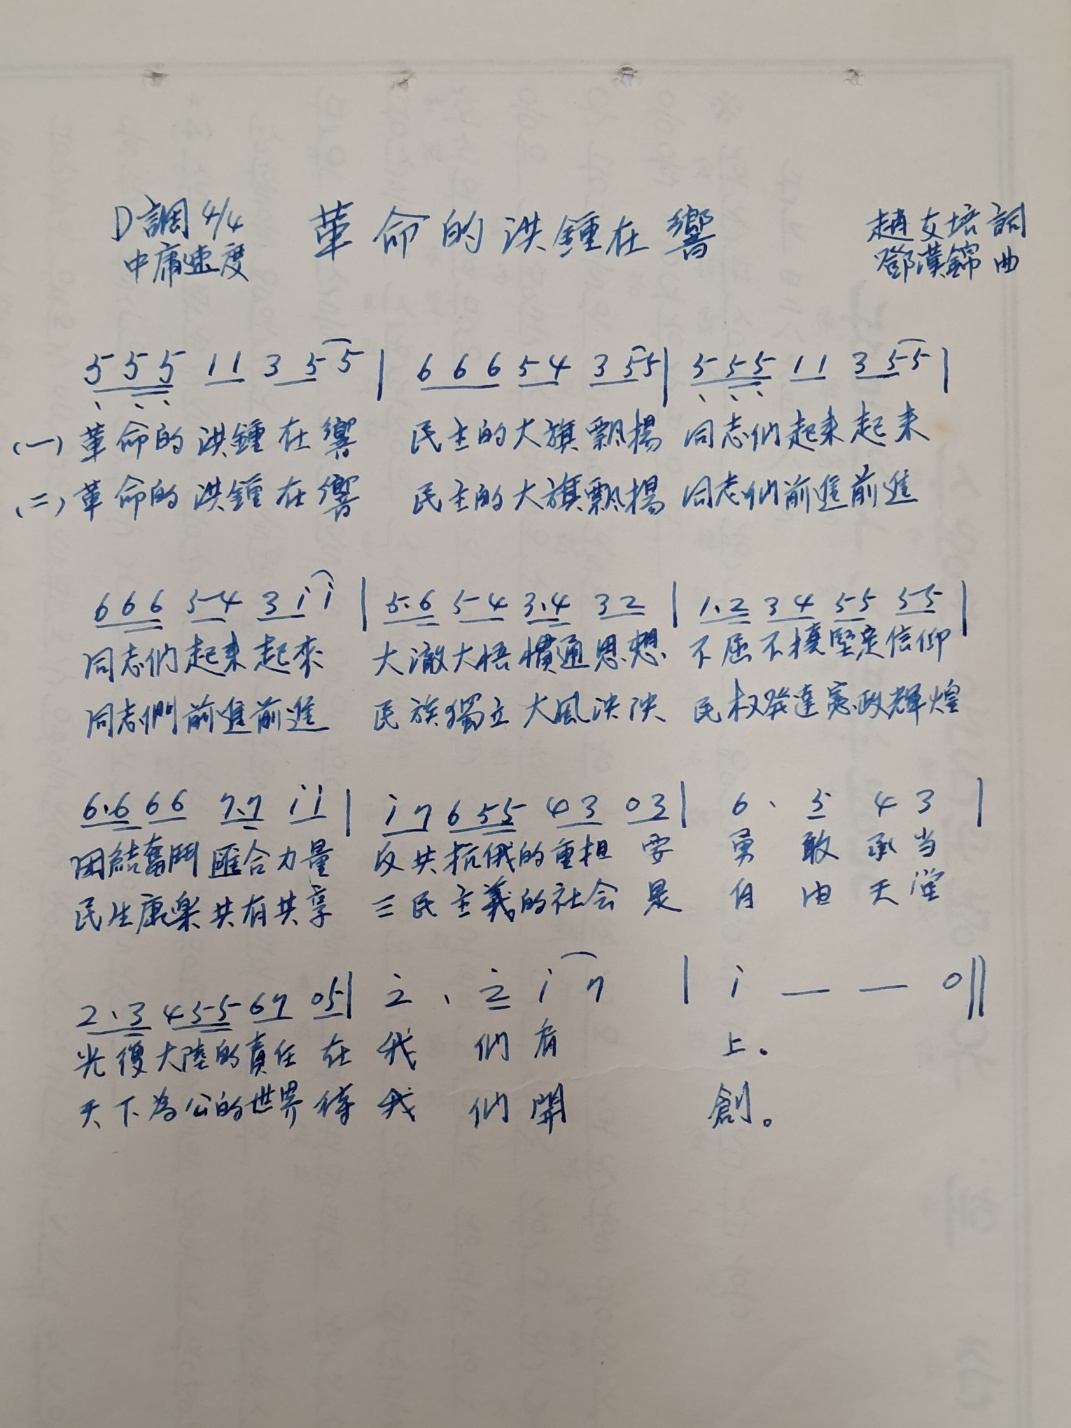 D調 4/4 革命的洪鍾在響 趙友培 詞
中庸速度 鄧漢錦 曲
5 5 5 1 1 3 5 5 | 6 6 6 5 4 3 5 5 | 5 5 5 1 1 3 5 5 |
(一) 革命的洪鍾在響 民主的大旗飄揚 同志们起来起来
(二) 革命的洪鍾在響 民主的大旗飄揚 同志们前進前進
6 6 6 5 4 3 i i | 5.6 5 4 3.4 3 2 | 1.2 3 4 5 5 5 5 |
同志们起来起來 大澈大悟慣通思想 不屈不撓堅定信仰
同志們前進前進 民族獨立大風泱泱 民权發達憲政輝煌
6.6 6 6 7.7 i i | i 7 6 5 5 4 3 0 3 | 6 . 5 4 3 |
团結奮鬥匯合力量 反共抗俄的重担 要 勇 敢 承 当
民生康楽共有共享 三民主義的社会 是 自 由 天 堂
2.3 4 5 5 6 7 0 5 | 2̇ . 2̇ i 7 | i — — 0 ||
光復大陸的責任 在 我 們 肩 上。
天下為公的世界 待 我 們 開 創。